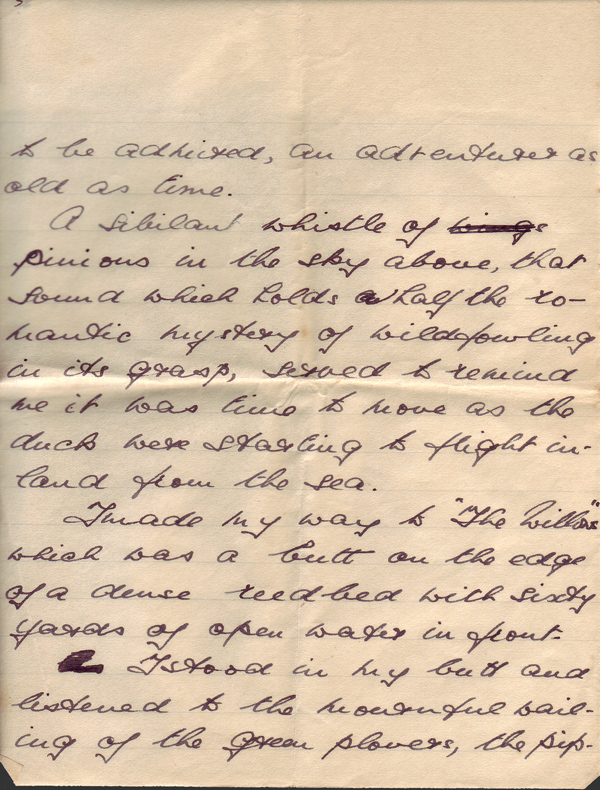 to be admired, an adventurer as
old as time.
A sibilant whistle of wings
pinions in the sky above, that
sound which holds half the ro-
mantic mystery of wildfowling
in its grasp, served to remind
me it was time to move as the
duck were starting to flight in-
land from the sea.
I made my way to "The Willows"
which was a butt on the edge
of a dense reedbed with sixty
yards of open water in front.
I stood in my butt and
listened to the mournful wail-
ing of the green plovers, the pip-